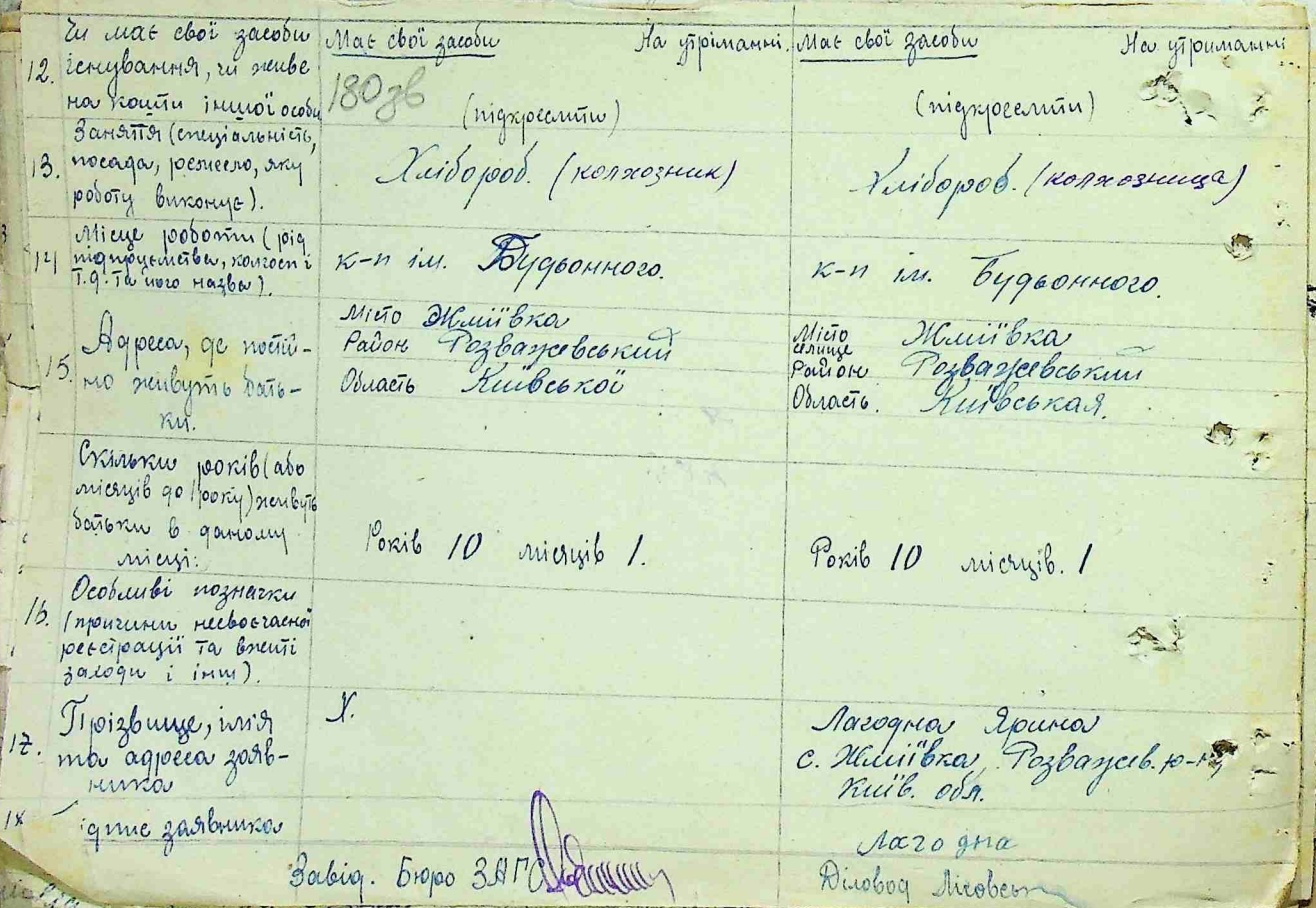 12. Чи має свої засоби існування, чи живе на кошти іншої особи
Має свої засоби На утріманні.
180 зв
(підкреслити)
Має свої засоби На утриманні
(підкреслити)
13. Заняття (спеціальність, посада, ремесло, яку роботу виконує).
Хлібороб. (колхозник)
Хлібороб. (колхозница)
14 Місце роботи (рід підпрцємства, колгосп і т.д. та його назва).
к-п ім. Будьонного.
к-п ім. Будьонного.
15. Адреса, де постій-
но живуть бать-
ки.
Місто Жміївка
Район Розважевський
Область Київської
Місто селище Жміївка
Район Розважевський
Область. Київськая.
Скільки років (або
місяців до 1 року) живуть
батьки в даному
місці:
Років 10 місяців 1.
Років 10 місяців. 1
16. Особливі позначки
(причини несвоєчасної
реєстрації та вжиті
заходи і інш).
17. Прізвище, імія
та адреса заяв-
ника
X.
Лагодна Ярина
с. Жміївка, Розважев. р-н,
Київ. обл.
18 ідпис заявника
Лагодна
Завід. Бюро ЗАГС
Діловод Лісовськ